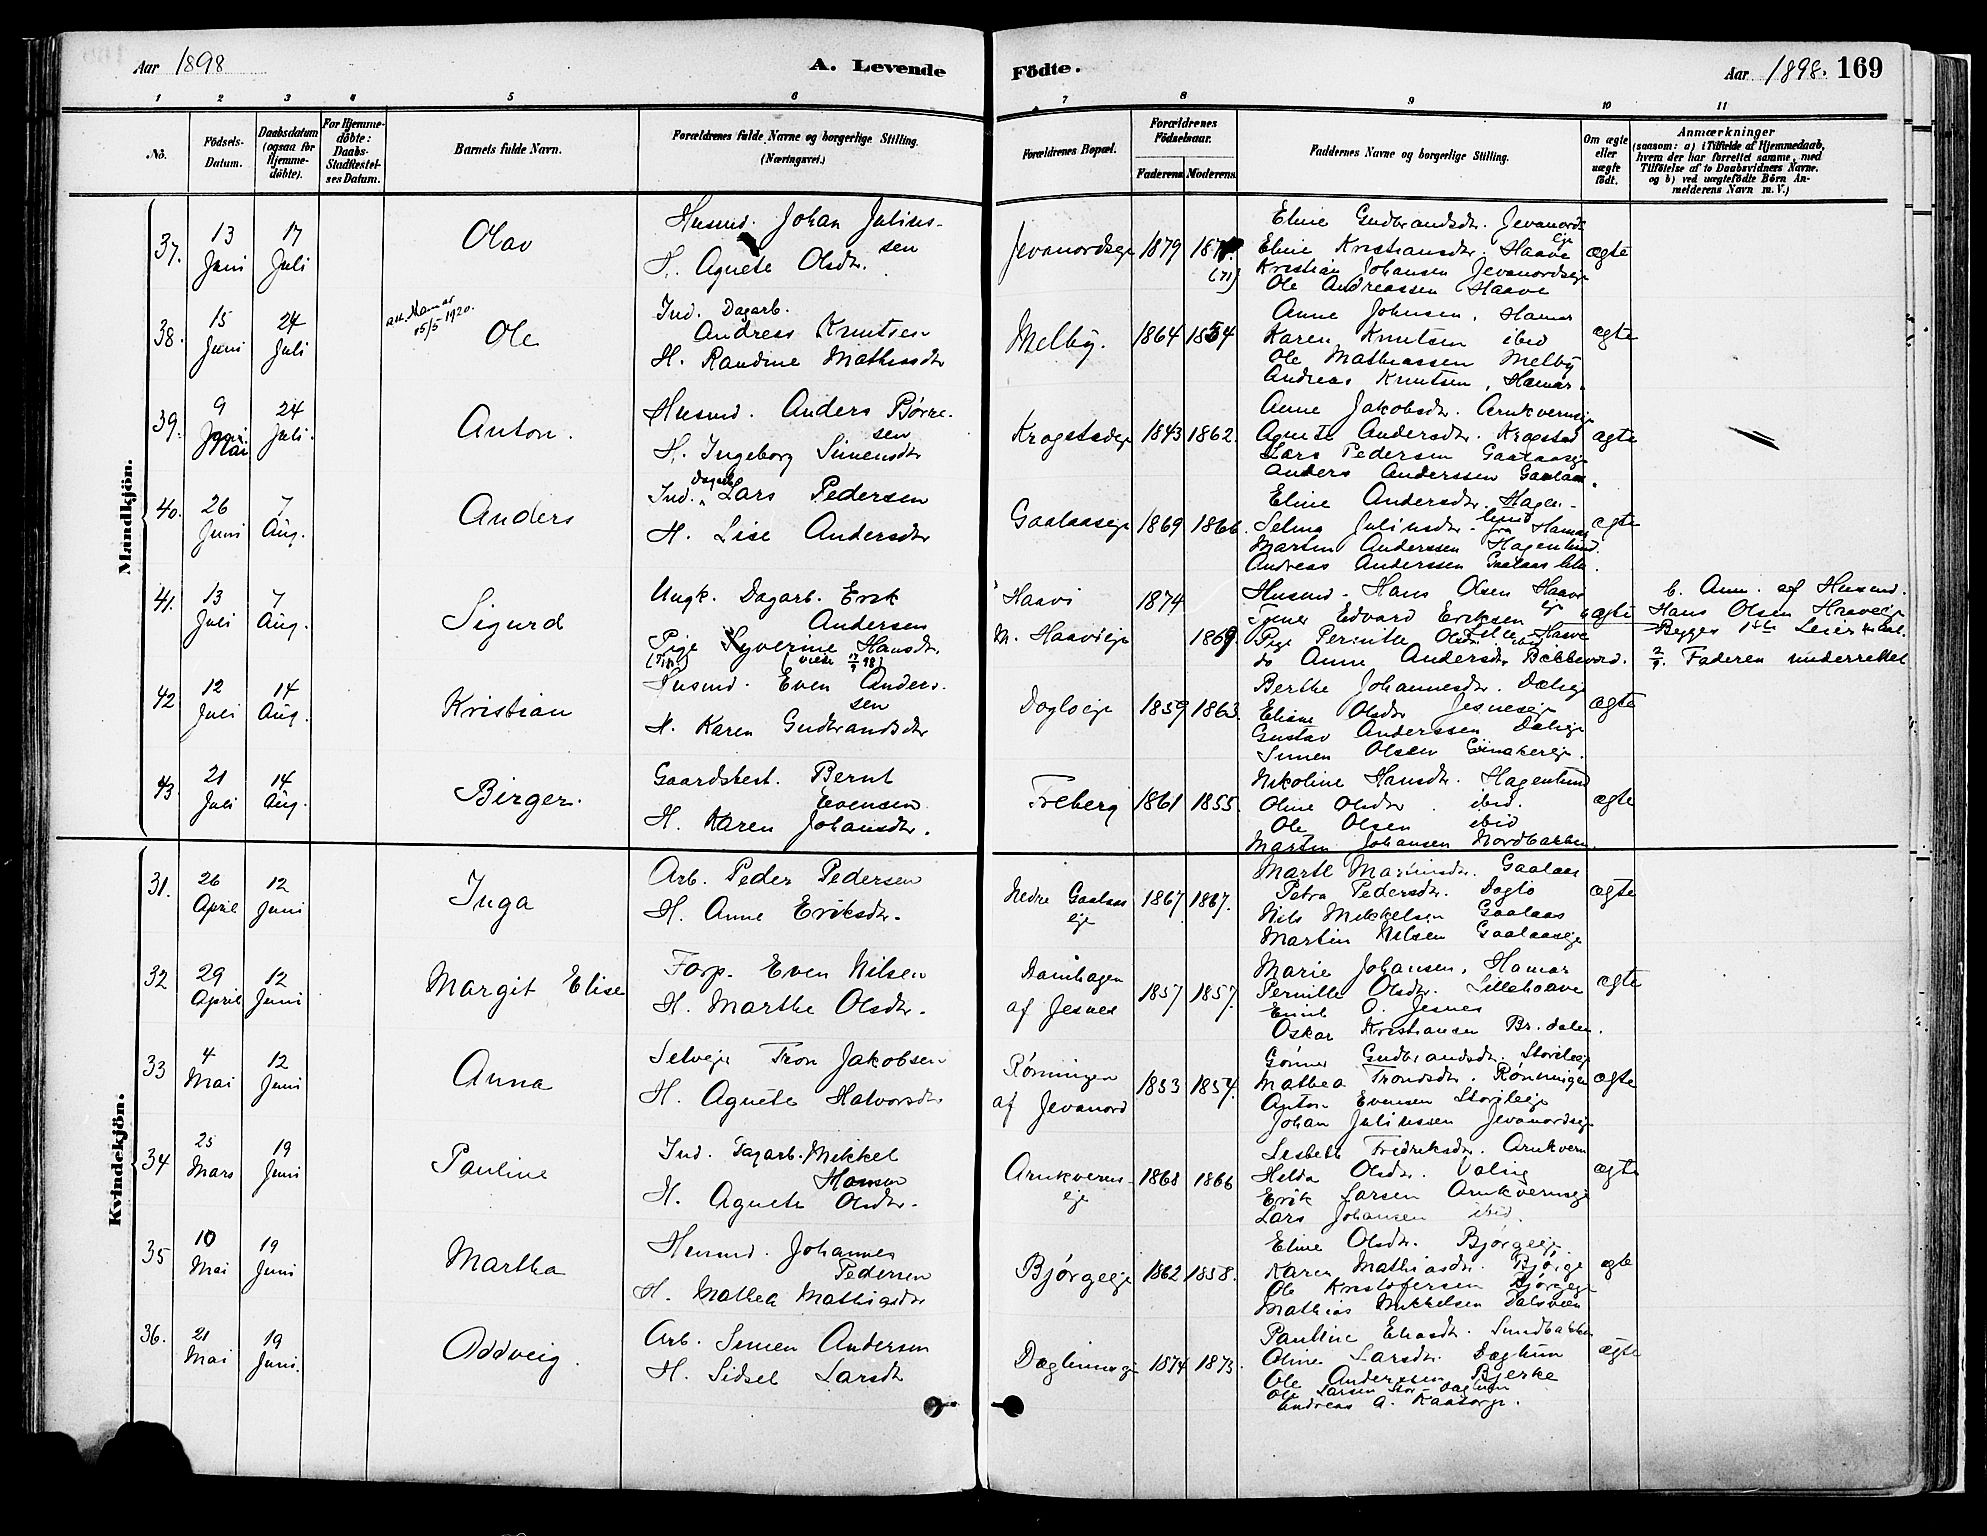 Aar 1898 A. Levende
Födte. Aar 1898. 169
1 2 3 4 5 6 7 8 9 10 11
No.
Födsels-
Datum.
Daabsdatum
(ogsaa for
Hjemme-
døbte).
For Hjemme-
døbte:
Daabs-
Stadfæstel-
ses Datum.
Barnets fulde Navn.
Forældrenes fulde Navne og borgerlige Stilling.
(Næringsvei.)
Forældrenes Bopæl.
Forældrenes
Födselsaar.
Faderens Moderens
Faddernes Navne og borgerlige Stilling.
Om ægte
eller
uægte
født.
Anmærkninger
(saasom: a) i Tilfælde af Hjemmedaab,
hvem der har forrettet samme, med
Tilføielse af to Daabsvidners Navne.
og b) ved uægtefødte Børn An-
melderens Navn m. V.)
Mandkjön.
37.
13
Juni
17
Juli
Olav
Husmd. Johan Julius-
sen
H. Agnete Olsdtr.
Jevanordseje
1879
(71)
Eline Gudbrandsdtr. Jevanords
eje
Eline Kristiansdtr. Haave
Kristian Johansen Jevanordseje
Ole Andreassen Haave
ægte
38.
15
Juni
24
Juli
att. Hamar
15/5 1920.
Ole
Ind. Dagarb.
Andreas Knutsen
H. Randine Mathiasdtr
Melby.
1864 1854
Anne Johnsen, Hamar
Karen Knutsen ibid
Ole Mathiassen Melby
Andreas Knutsen, Hamar.
ægte
39.
9
Mai
24
Juli.
Anton.
Husmd. Anders Børre-
sen
H. Ingeborg Simensdtr
Krogstadeje
1843 1862.
Anne Jakobsdtr. Arnkvernseje
Agnete Andersdtr. Krogstad
Lars Pedersen Gaalaaseje
Anders Anderssen Gaalaas.
ægte
40.
26
Juni
7
Aug.
Anders
Ind. Dagarb. Lars Pedersen
H. Lise Andersdtr
Gaalaaseje
1869 1866.
Eline Andersdtr. Hagen-
lund
Selma Juliusdtr. fra Hamar
Martin Anderssen Hagenlund.
Andreas Anderssen Gaalaas lille.
ægte
41.
13
Juli
7
Aug.
Sigurd
Ungk. Dagarb. Erik
Andersen
Pige Syverine Hansdtr
(viede 17/9 98)
Haave
M. Haaveeje
1874
1869
Husmd. Hans Olsen Haave
eje
Tjener Edvard Eriksen
Pige Pernille Olsdtr. Lille Haave
do Anne Andersdtr Bekkevold.
uægte
b. Anm. af Husmd.
Hans Olsen Haaveeje
Begges 1ste Leiermaal.
2/9. Faderen underrettet
42
12
Juli
14
Aug.
Kristian
Husmd. Even Anders-
sen
H. Karen Gudbrandsdtr
Dagloeje
1859 1863.
Berthe Johannesdtr. Dæleje
Eline Olsdtr Jesneseje
Gustav Anderssen Dæleje
Simen Olsen Grinakereje.
ægte
43.
21
Juli
14
Aug.
Birger.
Gaardsbest. Bernt
Evensen
H. Karen Johansdtr.
Freberg
1861 1855.
Nikoline Hansdtr. Hagenlund
Oline Olsdtr. ibid.
Ole Olsen ibid
Martin Johansen Nordbakken.
ægte
Kvindekjön.
31.
26
April
12
Juni
Inga
Arb. Peder Pedersen
H. Anne Eriksdtr.
Nedre Gaalaas
eje
1867 1867.
Marte Martinsdtr. Gaalaas
Petra Pedersdtr. Daglo
Nils Mikkelsen Gaalaas
Martin Nilsen Gaalaaseje
ægte
32
29
April
12
Juni
Margit Elise
Forp. Even Nilsen
H. Marthe Olsdtr.
Damhagen
af Jesnes
1857 1857.
Marie Johansen, Hamar
Pernille Olsdtr. Lillehaave
Emil O. Jesnes
Oskar Kristiansen Br.dalen.
ægte
33
4
Mai
12
Juni
Anna
Selveje Tron Jakobsen
H. Agnete Halvorsdtr
Rønningen
af Jevanord
1853 1854.
Gunner Gudbrandsdtr. Storileeje
Mathea Trondsdtr. Rønningen
Anton Evensen Storileeje
Johan Juliussen Jevanordseje
ægte
34
25
Mars
19
Juni
Pauline
Ind. Dagarb. Mikkel
Hansen
H. Agnete Olsdtr.
Arnkverns-
eje
1868 1866
Lisbeth Fredriksdtr. Arnkvern
Helda Olsdtr. Valeng
Erik Larsen Arnkvernseje
Lars Johansen ibid.
ægte
35
10
Mai
19
Juni
Martha
Husmd. Johannes
Pedersen
H. Mathea Mathiasdtr
Bjørgeeje
1862 1858.
Eline Olsdtr. Bjørgeeje.
Karen Mathiasdtr. Bjørge
Ole Kristofersen Bjørgeeje
Mathias Mikkelsen Dalsveen
ægte
36.
21
Mai
19
Juni.
Oddveig.
Arb. Simen Andersen
H. Sidsel Larsdtr
Daglumeje
1874 1873.
Pauline Eliasdtr. Sundbakken
Oline Larsdtr. Daglum
Ole Anderssen Bjerke
Ole Larsen Stor-Daglum
Andreas A. Kaatorp.
ægte